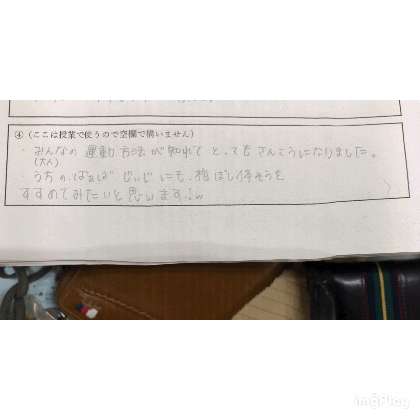 ④（ここは授業で使うので空欄で構いません）
・みんなの 運動方法が知れて とってもさんこうになりました。
(大人)
・うちの ばぁば じぃじにも、指ばし体そうを
すすめてみたいと思います!!
imgPlay